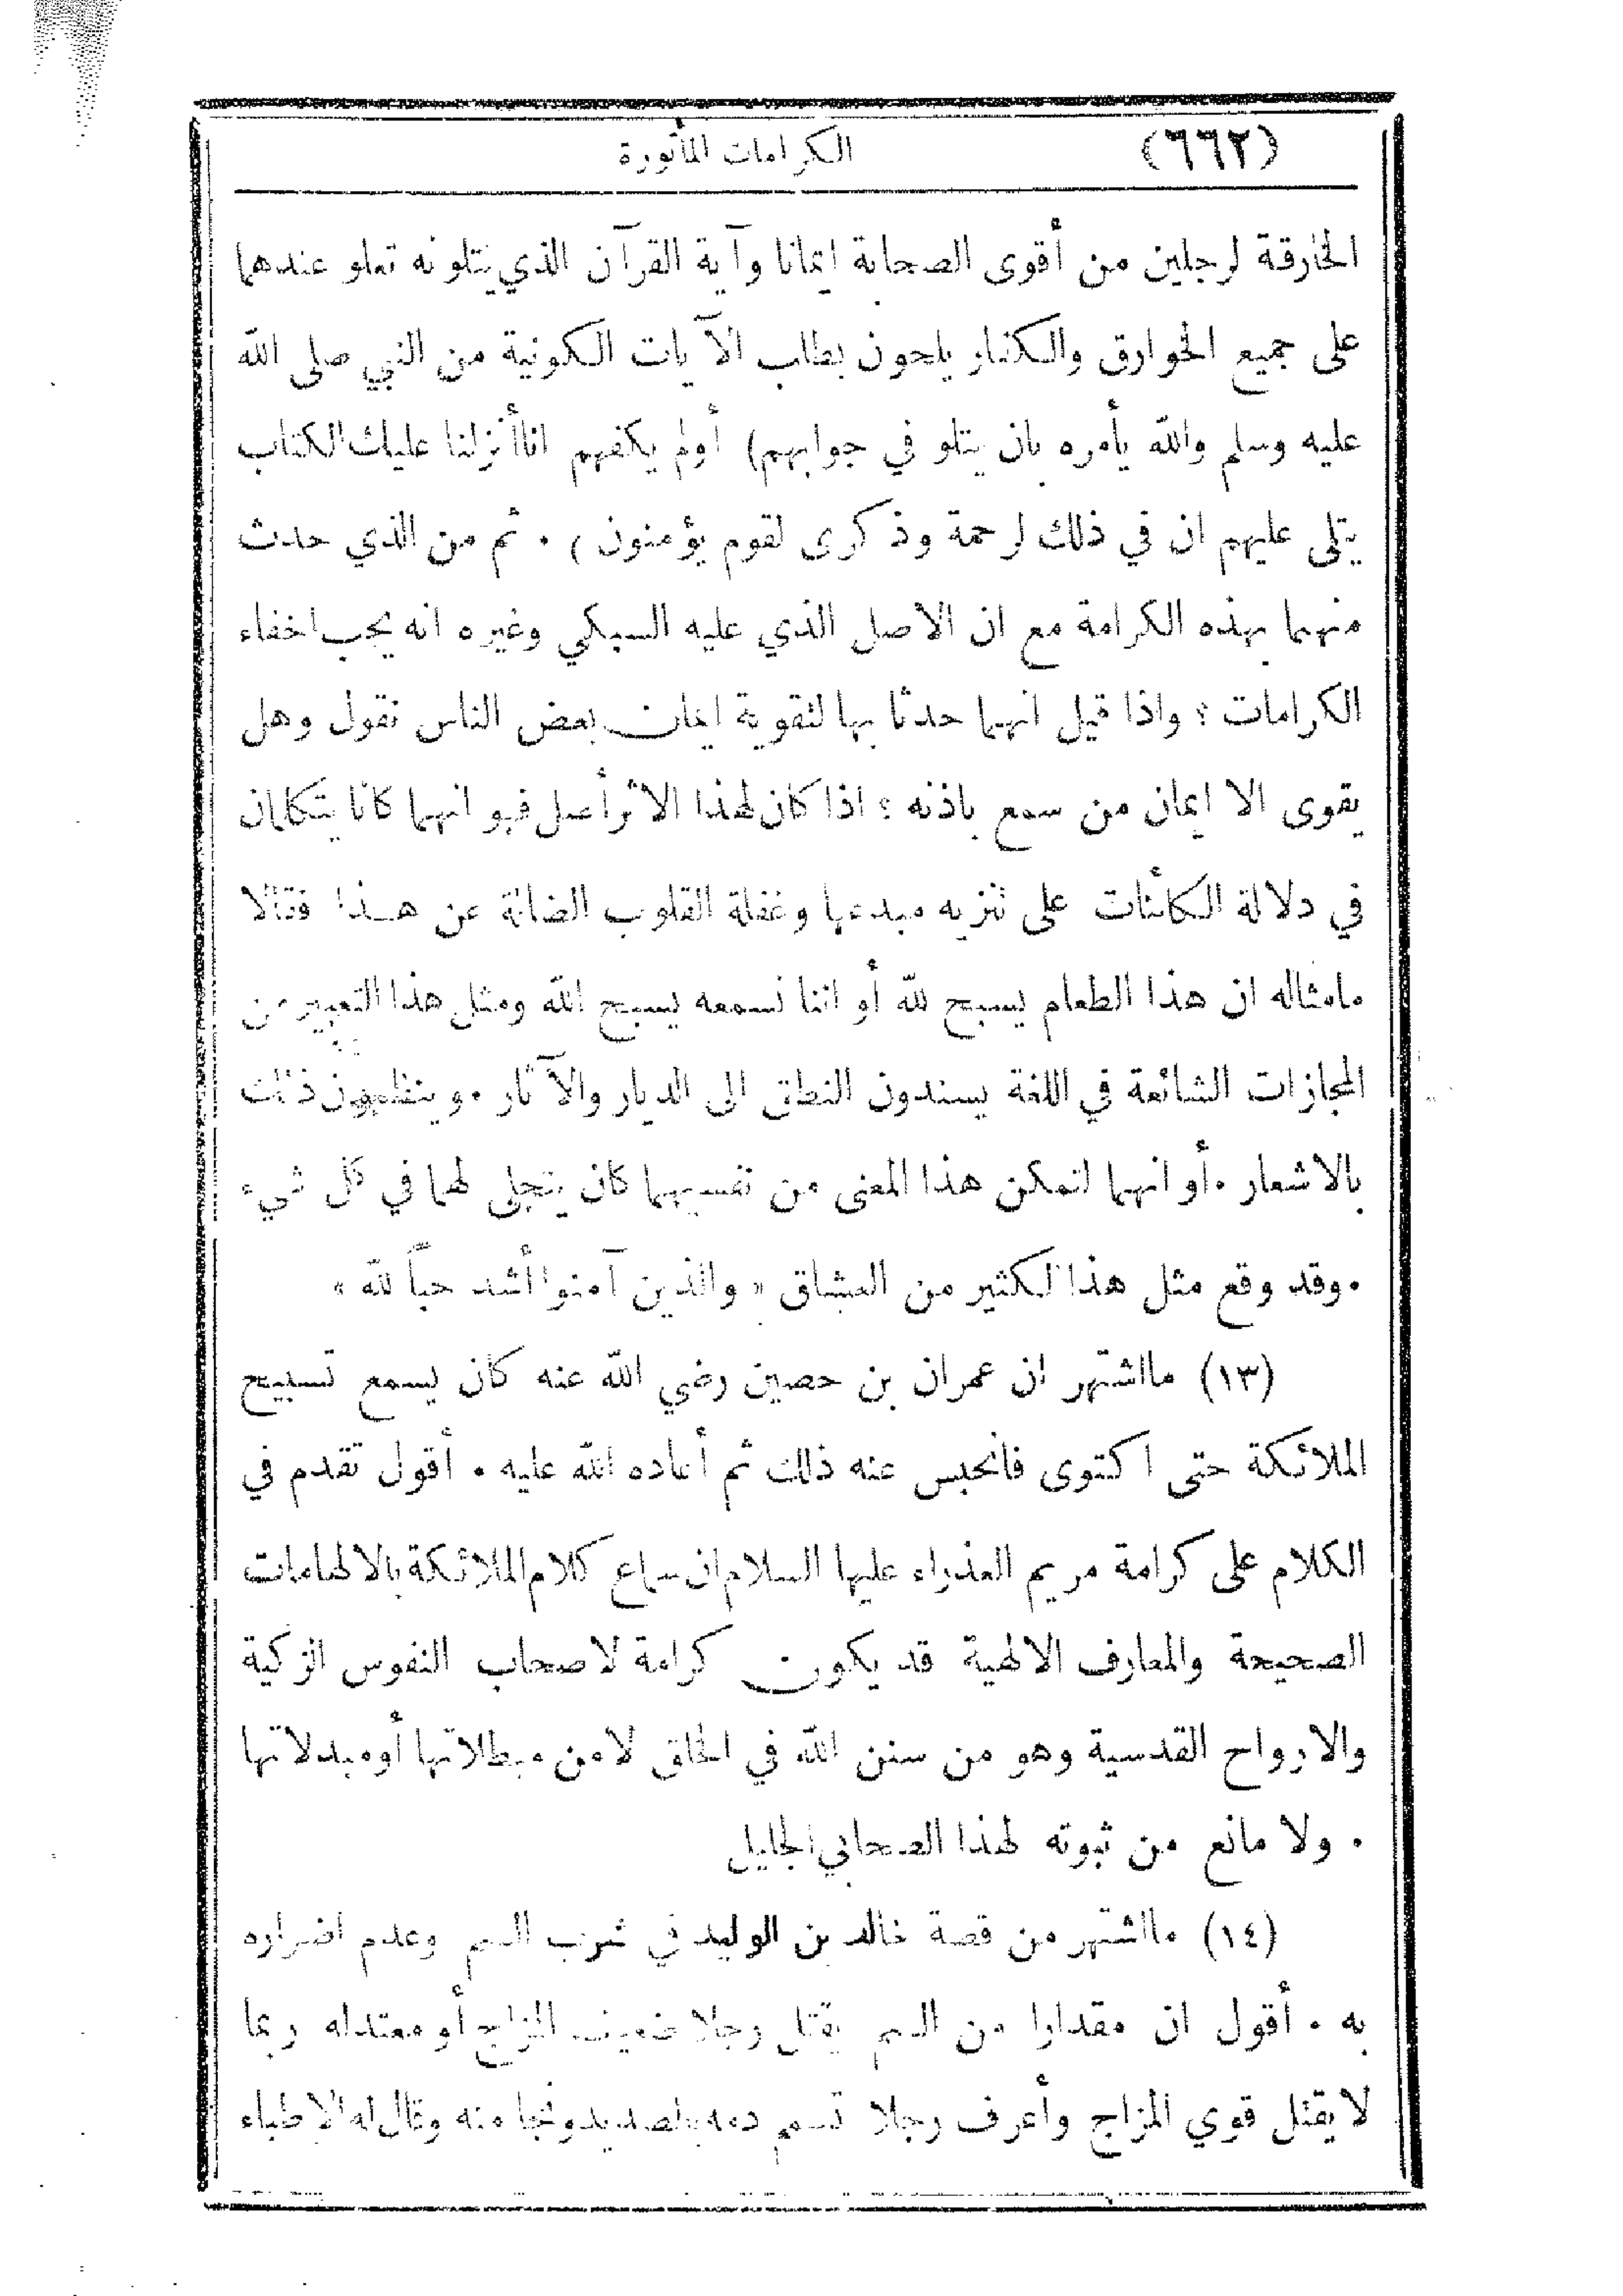 (٦٦٢) الكرامات المأثورة
الخارقة لرجلين من أقوى الصحابة ايمانا وآية القرآن الذي يتلونه تعلو عندهما
على جميع الخوارق والكفار يلحون بطلب الآيات الكونية من النبي صلى الله
عليه وسلم والله يأمره بان يتلو في جوابهم) أولم يكفهم اناأنزلنا عليك الكتاب
يتلى عليهم ان في ذلك لرحمة وذكرى لقوم يؤمنون) . ثم من الذي حدث
منهما بهذه الكرامة مع ان الاصل الذي عليه السبكي وغيره انه يجب اخفاء
الكرامات ؟ واذا قيل انهما حدثا بها لتقوية ايمان بعض الناس نقول وهل
يقوى الا ايمان من سمع باذنه ؟ اذا كان لهذا الاثر أصل فهو انهما كانا يتكلمان
في دلالة الكائنات على تنزيه مبدعها وغفلة القلوب الضالة عن هذا فقالا
مامثاله ان هذا الطعام يسبح لله أو اننا نسمعه يسبح الله ومثل هذا التعبير من
المجازات الشائعة في اللغة يسندون النطق الى الديار والآثار . وينظمون ذلك
بالاشعار . أو انهما لتمكن هذا المعنى من نفسيهما كان يتجلى لهما في كل شيء
. وقد وقع مثل هذا لكثير من العشاق « والذين آمنوا أشد حباً لله »
(١٣) مااشتهر ان عمران بن حصين رضي الله عنه كان يسمع تسبيح
الملائكة حتى اكتوى فانحبس عنه ذلك ثم أعاده الله عليه . أقول تقدم في
الكلام على كرامة مريم العذراء عليها السلام ان سماع كلام الملائكة بالالهامات
الصحيحة والمعارف الالهية قد يكون كرامة لاصحاب النفوس الزكية
والارواح القدسية وهو من سنن الله في الخلق لامن مبطلاتها أومبدلاتها
. ولا مانع من ثبوته لهذا الصحابي الجليل
(١٤) مااشتهر من قصة خالد بن الوليد في شرب السم وعدم اضراره
به . أقول ان مقدارا من السم يقتل رجلا ضعيف المزاج أو معتدله ربما
لايقتل قوي المزاج وأعرف رجلا تسمم دمه بالصديد ونجا منه وقال له الاطباء